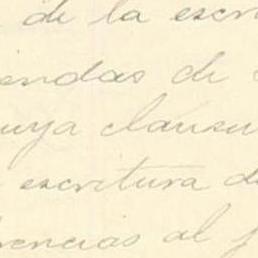 de la escri
endas de
uya clausu
escritura d
rencias al